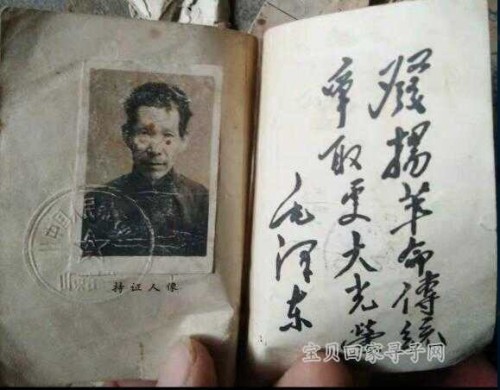 持证人像
發揚革命傳統
爭取更大光榮
毛泽东
宝贝回家寻子网